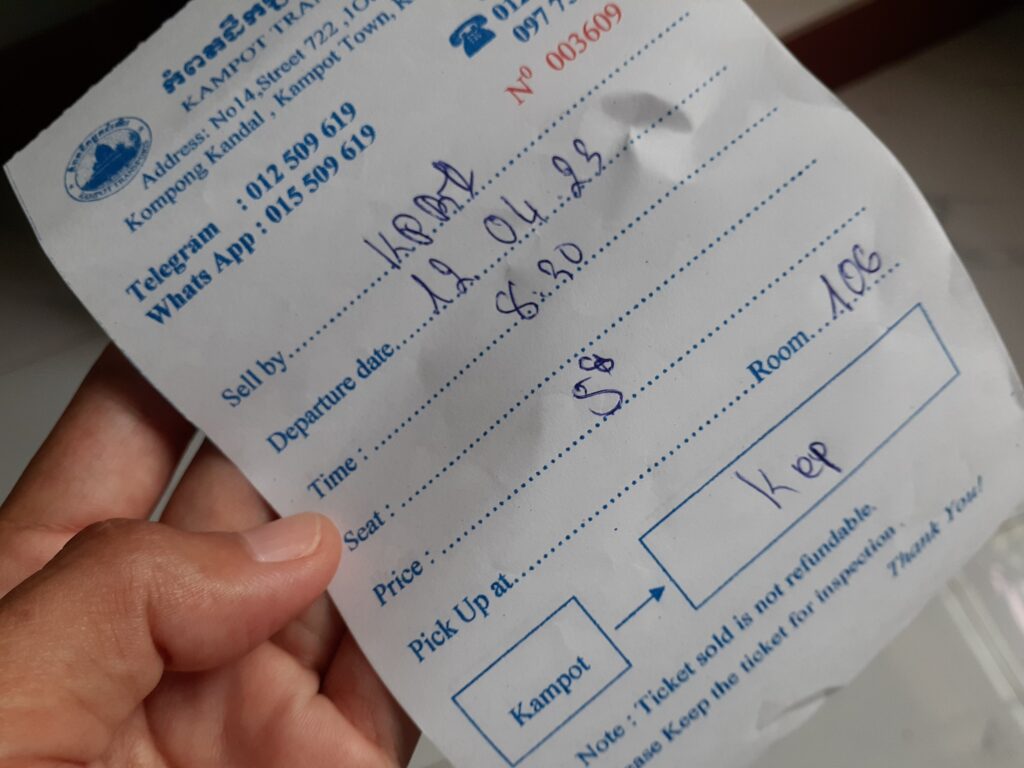 KAMPOT TRA
Address: No14,Street 722 ,1O
Kompong Kandal , Kampot Town, K
012
097 7
Nº 003609
Telegram : 012 509 619
Whats App : 015 509 619
Sell by
Departure date 12 04 23
Time : 8.30
Seat :
Price : 5$
Pick Up at Room 106
Kampot Kep
Note : Ticket sold is not refundable.
ase Keep the ticket for inspection .
Thank You!